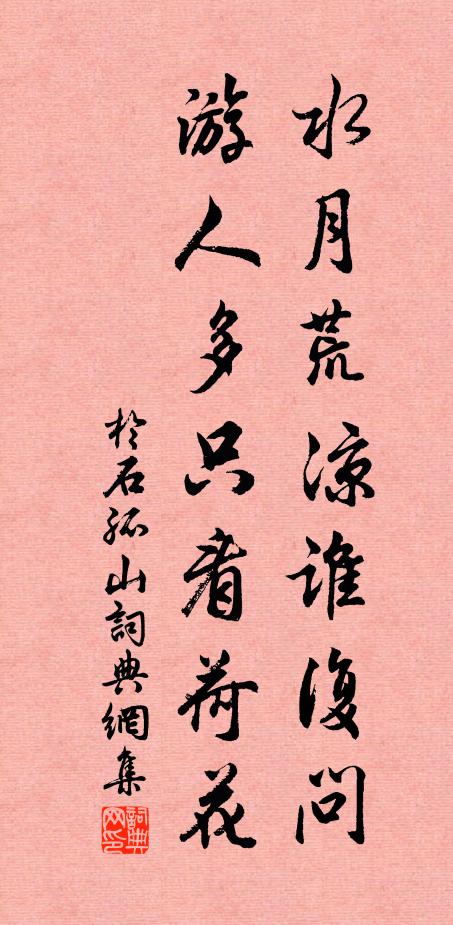 水月荒凉谁復问
游人多只看荷花
於石孤山詞典網集
詞典网印